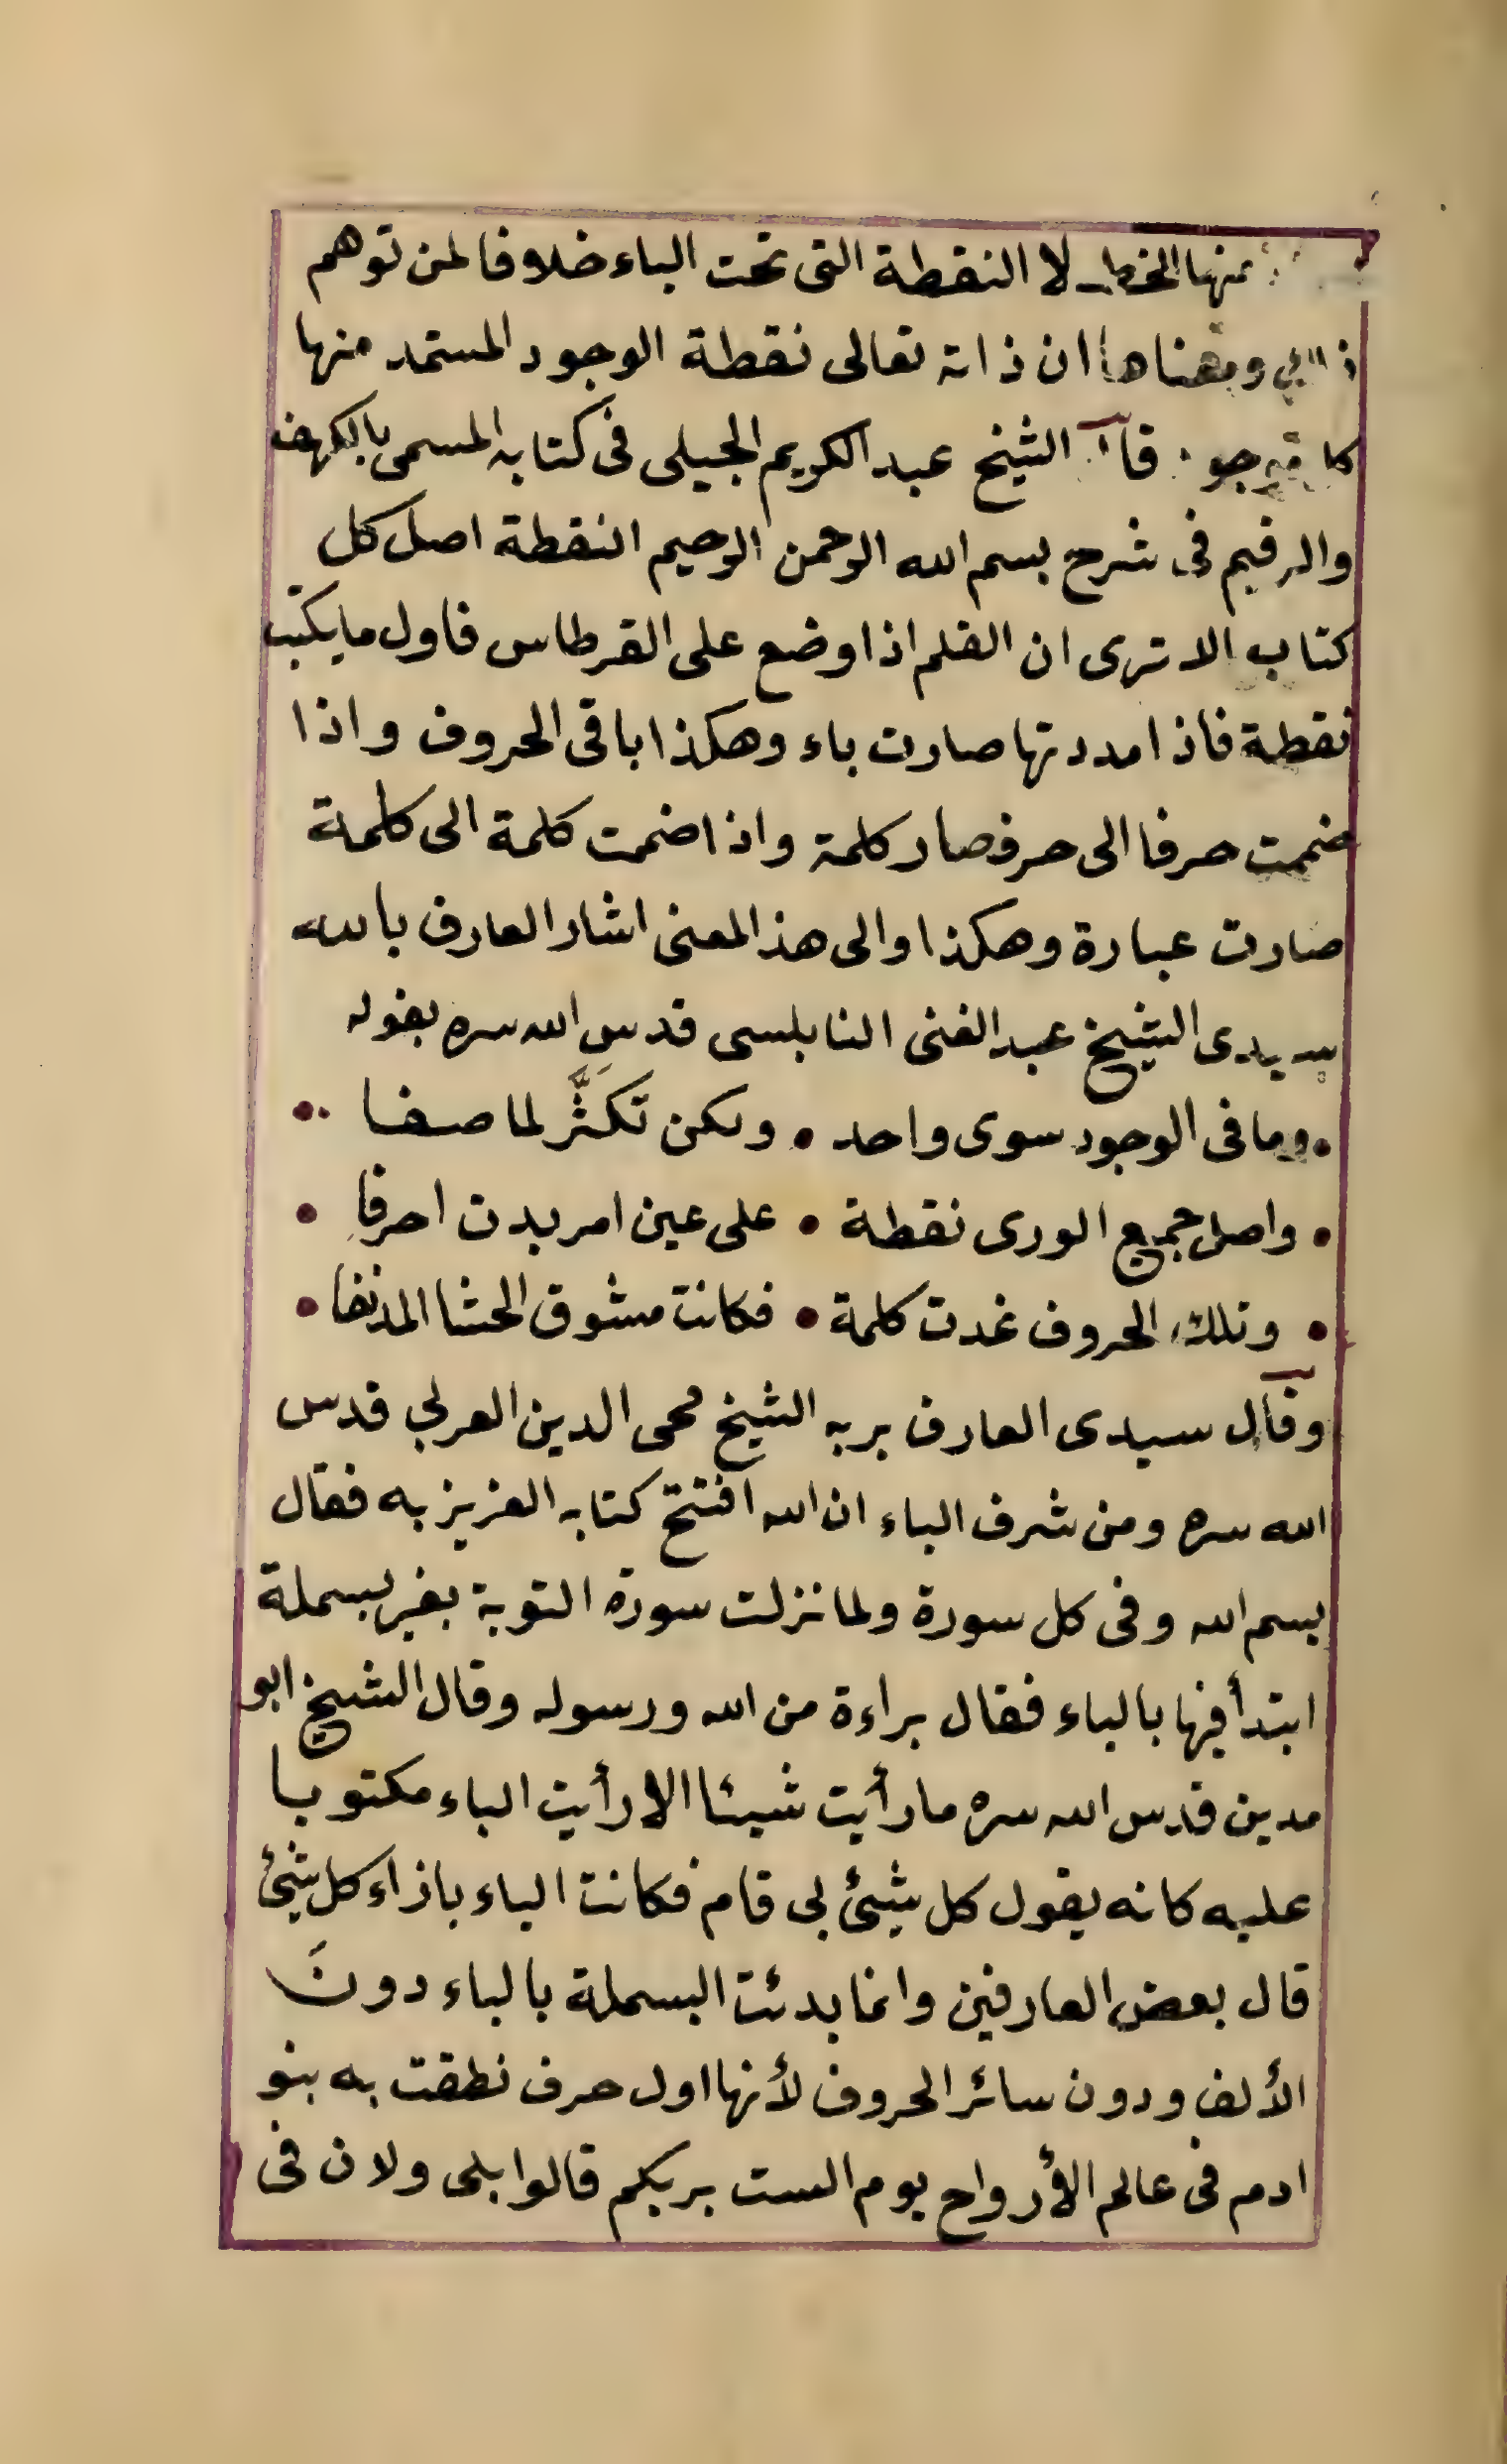 منها الخط لا النقطة التى تحت الباء خلافا لمن توهم
ومعناها ان ذاته تعالى نقطة الوجود المستمد منها
الشيخ عبد الكريم الجيلى فى كتابه المسمى بالكهف
والرقيم فى شرح بسم الله الرحمن الرحيم النقطة اصل كل
كتاب الا ترى ان القلم اذا وضع على القرطاس فاول ما يكتب
نقطة فاذا مددتها صارت باء وهكذا باقى الحروف واذا
ضممت حرفا الى حرف صار كلمة واذا ضممت كلمة الى كلمة
صارت عبارة وهكذا والى هذا المعنى اشار العارف بالله
سيدى الشيخ عبد الغنى النابلسى قدس الله سره بقوله
• وما فى الوجود سوى واحد • ولكن تَكَثَّر لما صفا •
• واصل جميع الورى نقطة • على عين امر بدت احرفا •
• وتلك الحروف غدت كلمة • فكانت مشوق الحشا المدنفا •
وقال سيدى العارف بربه الشيخ محى الدين العربي قدس
الله سره ومن شرف الباء ان الله افتتح كتابه العزيز به فقال
بسم الله وفى كل سورة ولما نزلت سورة التوبة بغير بسملة
ابتدأ فيها بالباء فقال براءة من الله ورسوله وقال الشيخ ابو
مدين قدس الله سره ما رأيت شيئا الا رأيت الباء مكتوبا
عليه كانه يقول كل شيئ بى قام فكانت الباء بازاء كل شيئ
قال بعض العارفين وانما بدئت البسملة بالباء دونَ
الألف ودون سائر الحروف لأنها اول حرف نطقت به بنو
ادم فى عالم الأرواح يوم الست بربكم قالوا بلى ولان فى